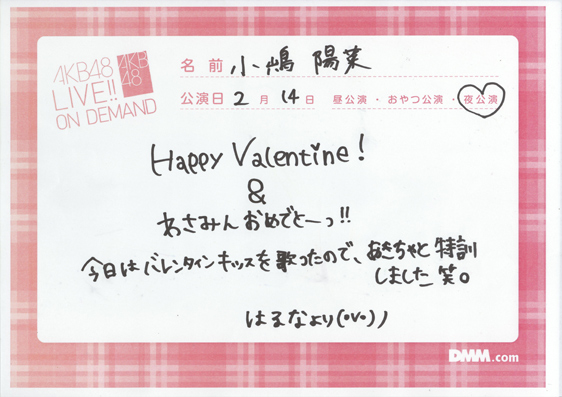 AKB48
LIVE!!
ON DEMAND
AKB
48
名前 小嶋 陽菜
公演日 2 月 14 日 昼公演・おやつ公演・夜公演
Happy Valentine!
&
わさみんおめでとーっ!!
今日はバレンタインキッスを歌ったので、あきちゃと特訓
しました笑。
はるなより(・v・)ノ
DMM.com